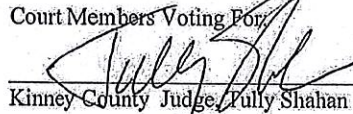 Court Members Voting For:
Tully Shahan
Kinney County Judge, Tully Shahan